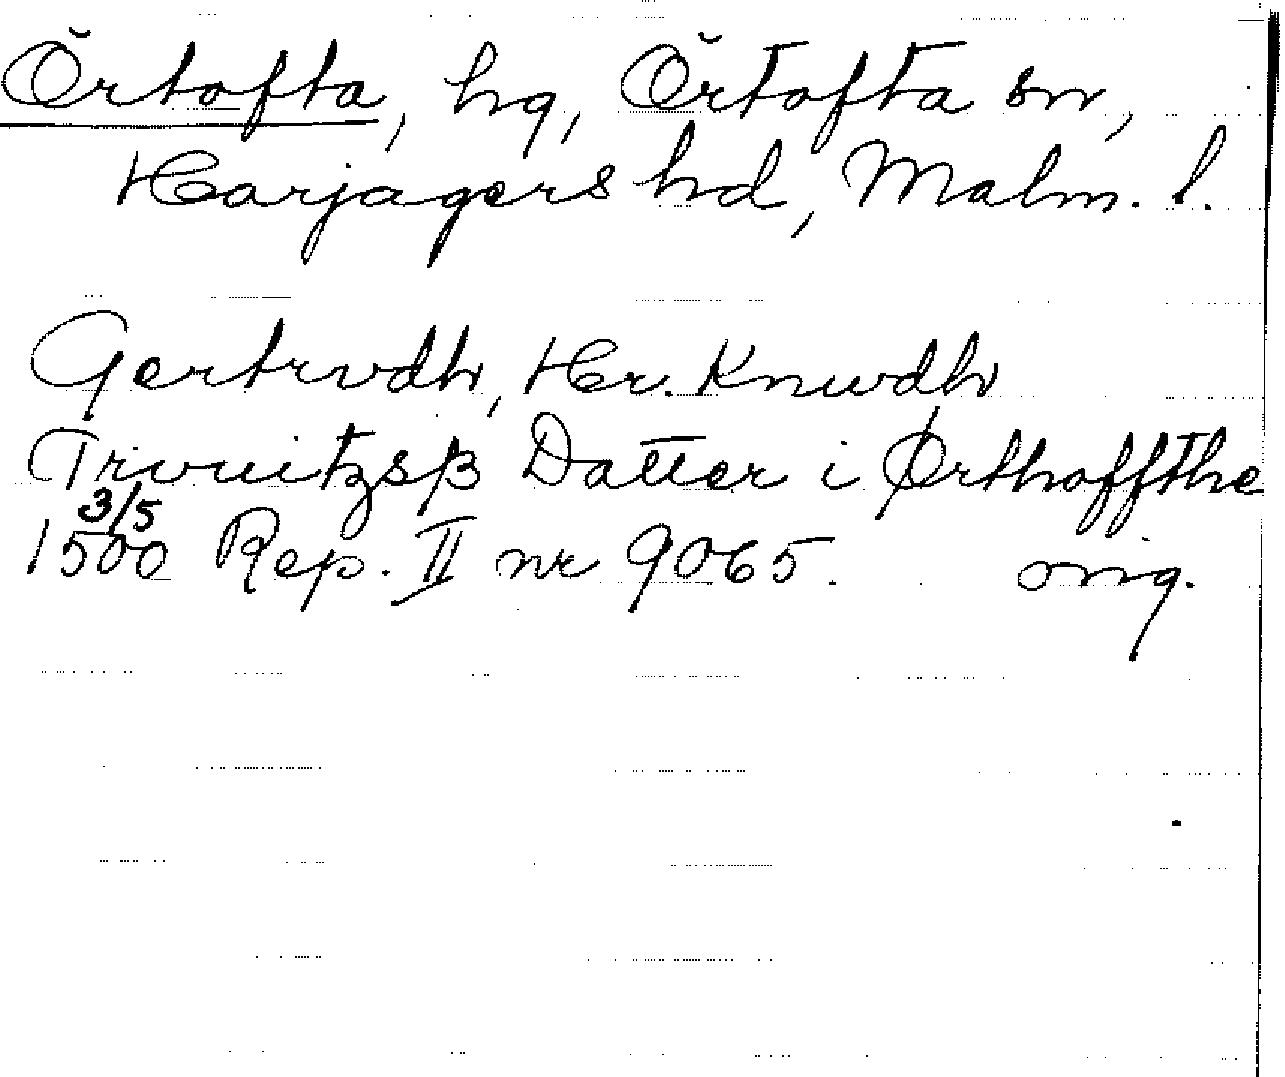 Örtofta, hg, Örtofta sn,
Harjagers hd, Malm. l.
Gertrvdh, Her. Knwdh
Trvuitzsβ Datter i Ørthoffthe
3/5
1500 Rep. II nr 9065. orig.